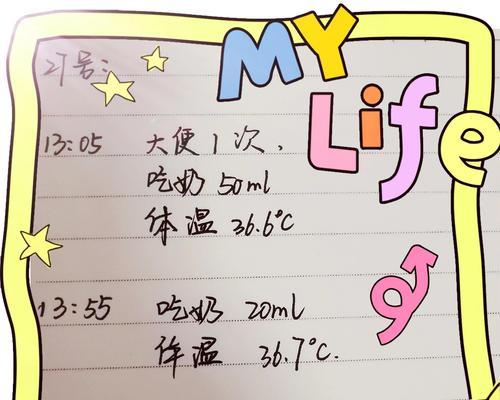 MY
Life
21号:
13:05 大便1次,
吃奶 50ml
体温 36.6℃
13:55 吃奶 20ml
体温 36.7℃.